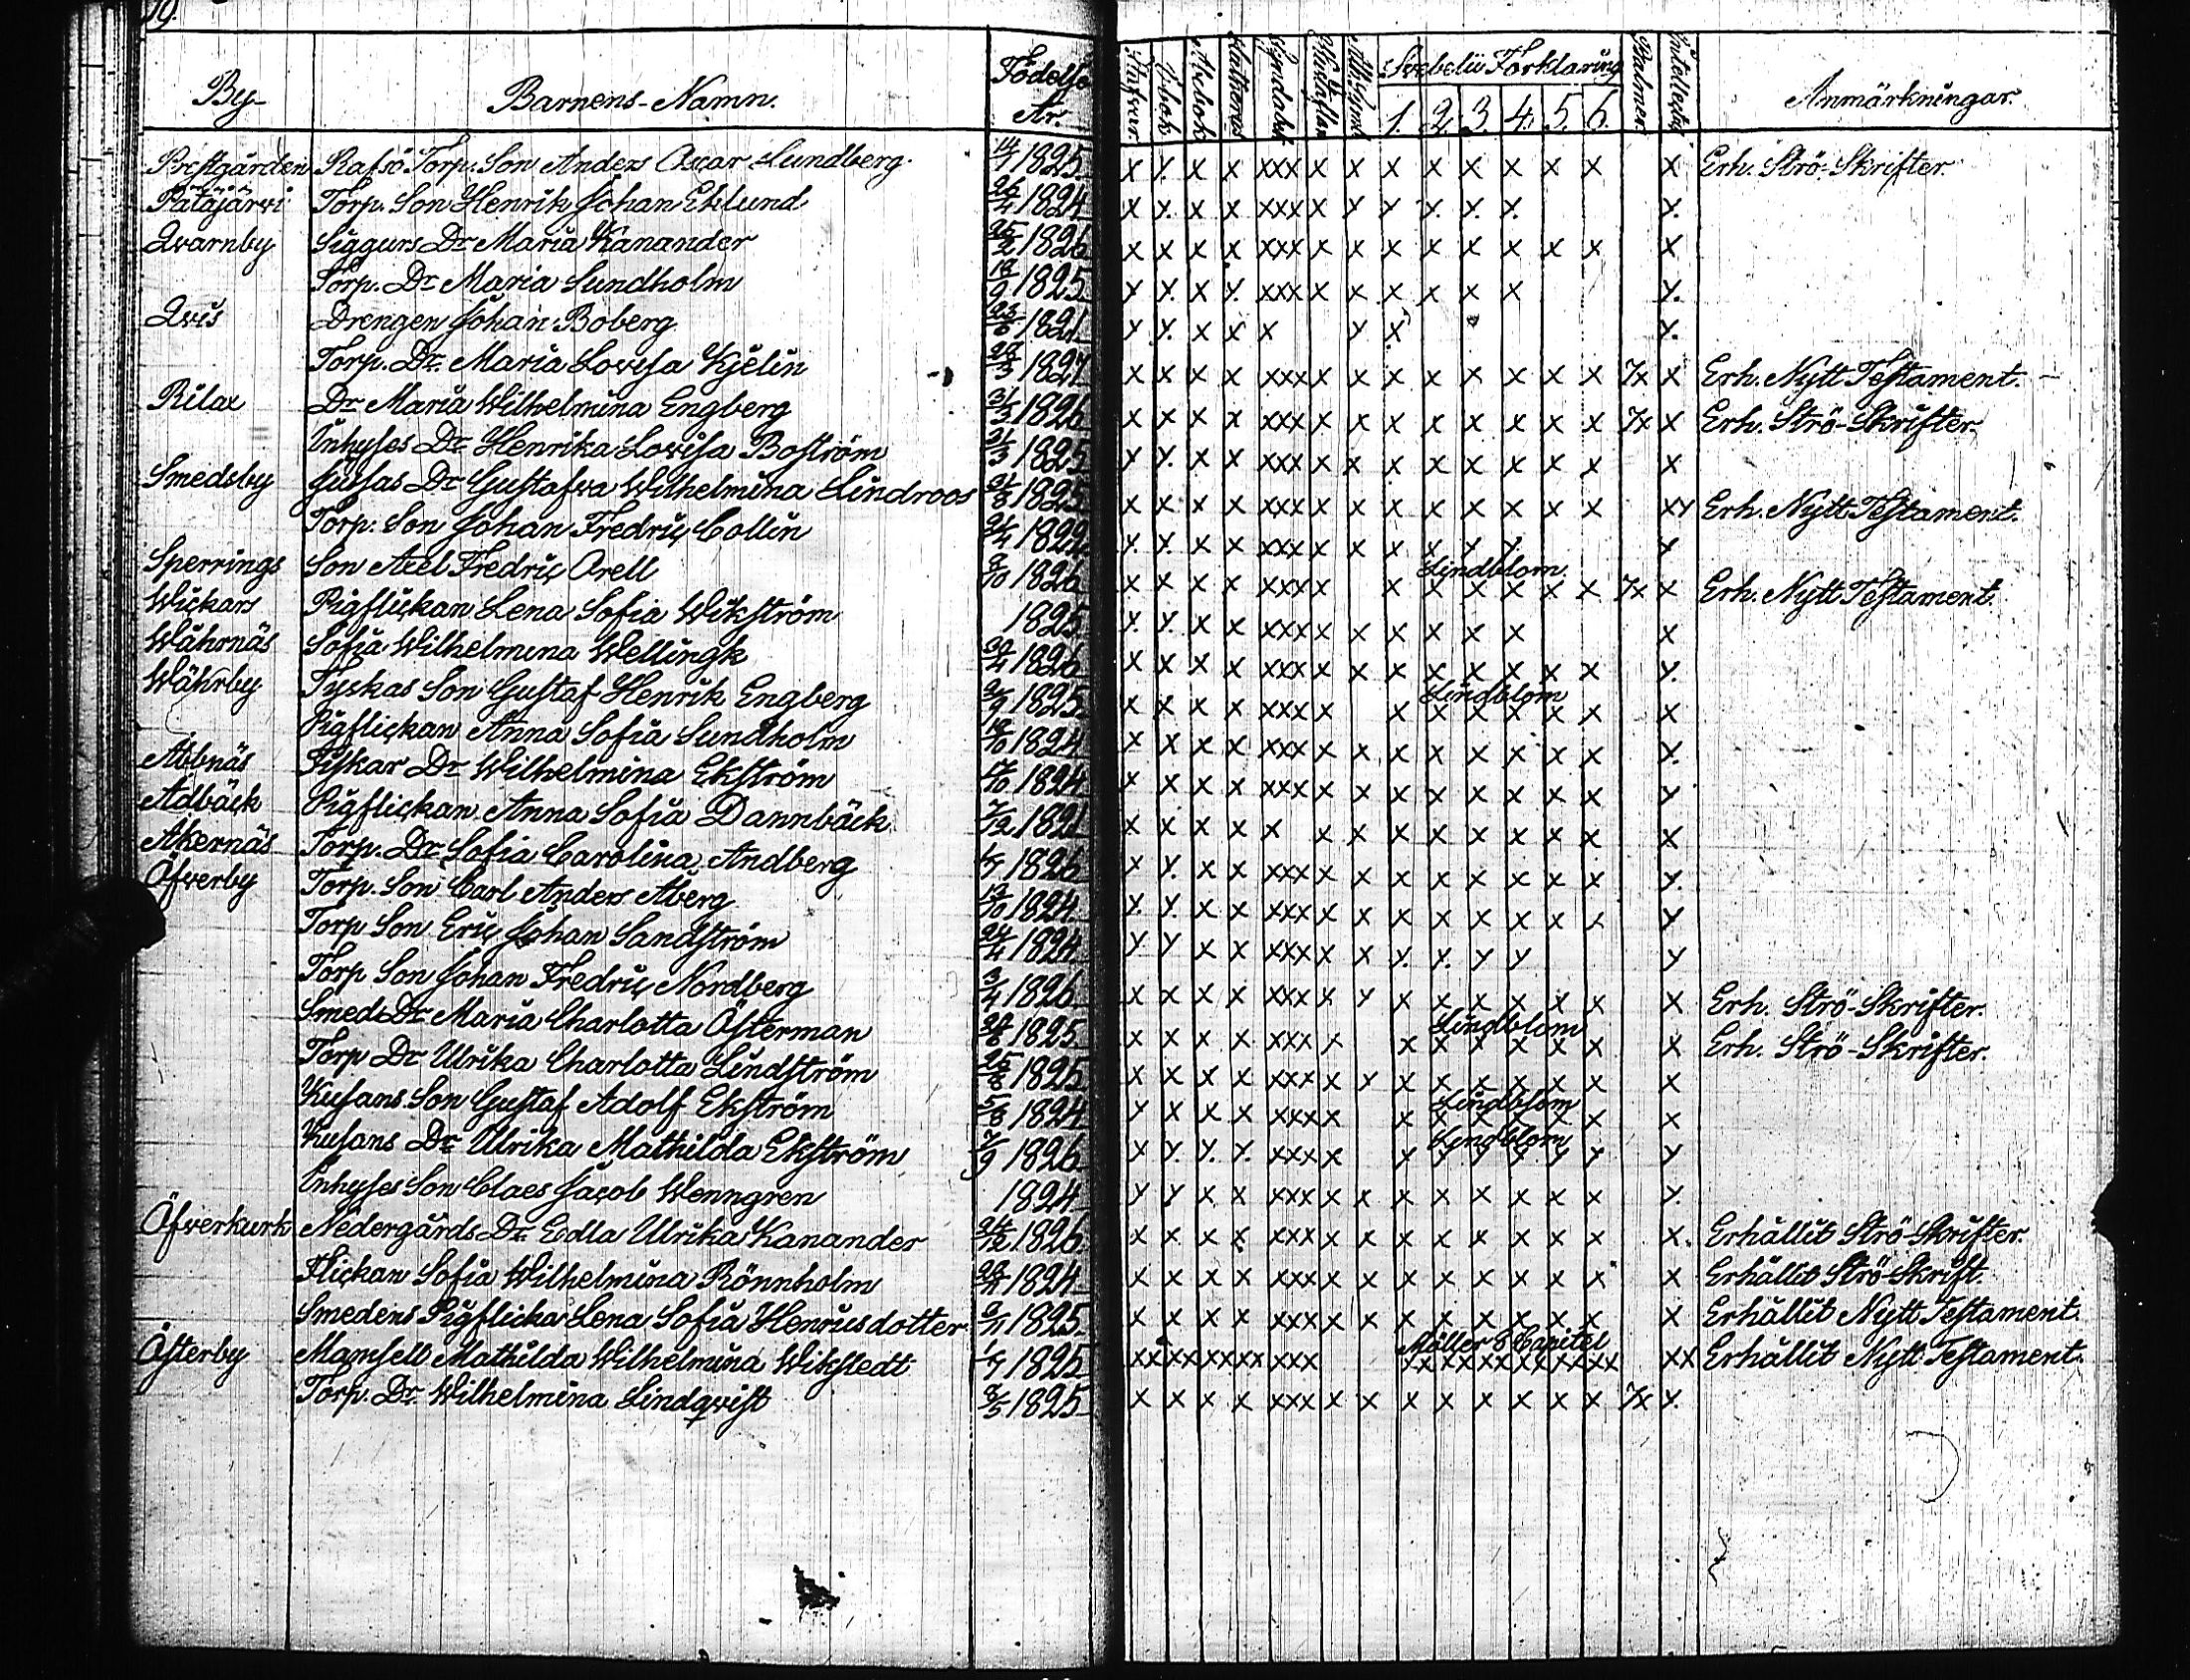 19.
By Barnens-Namn. Födelse År. Stafvar Svebelii Förklaring Psalmer. Anmärkningar.
1. 2. 3. 4. 5. 6.
Prestgården Rafsö Torp. Son Anders Oscar Lundberg. 14/7 1825 x y. x x xxx x x x x x x x x x Erh. Strö-Skrifter.
Päiäjärvi Torp. Son Henrik Johan Eklund 26/4 1824 x y. x x xxx x y y y. y. y. y.
Qvarnby Siggurs Dr Maria Kanander 25/2 1826 x x x x xxx x x x x x x x x x
Torp. Dr Maria Sundholm 18/9 1825 y y. x y. xxx x x x x x x y.
Qvis Drengen Johan Boberg 23/6 1821 y y. x x x y x y.
Torp. Dr. Maria Lovisa Kjelin 27/3 1827 x x x x xxx x x x x x x x x 7x x Erh. Nytt Testament.
Rilax Dr Maria Wilhelmina Engberg 31/3 1826 x x x x xxx x x x x x x x x 7x x Erh. Strö-Skrifter.
Inhyses Dr Henrika Lovisa Boström 31/3 1825 y y. x x xxx x x x x x x x x x
Smedsby Jussas Dr Gustafva Wilhelmina Lindroos 31/8 1825 x x x x xxx x x x x x x x x xy Erh. Nytt Testament.
Torp. Son Johan Fredric Collin 21/4 1822 y. y. x x xxx x x x x y y. y
Sperrings Son Axel Fredric Orell 2/10 1826 x x x x xxx x Lindblom. x x x x x x 7x x Erh. Nytt Testament.
Wickars Pigflickan Lena Sofia Wikström 1825 y. y. x x xxx x x x x x x x
Wåhrnäs Sofia Wilhelmina Wellingk 30/4 1826 x x x x xxx x x x x x x x x y.
Wåhrby Tyskas Son Gustaf Henrik Engberg 2/9 1825 x x x x xxx x Lindblom x x x x x x x
Pigflickan Anna Sofia Sundholm 18/10 1824 x x x x xxx x x x x x x x x y.
Åbbnäs Fiskar Dr Wilhelmina Ekström 17/10 1824 x x x x xxx x x x x x x x x y
Ådbäck Pigflickan Anna Sofia Dannbäck 7/12 1821 x x x x x x x x x x x x x x
Åkernäs Torp. Dr Sofia Carolina Andberg 1/7 1826 x y. x x xxx x x x x x x x x y.
Öfverby Torp. Son Carl Anders Åberg 13/10 1824 y. y. x x xxx x x x x x x x x y
Torp Son Eric Johan Sandström 24/4 1824 y y x x xxx x x y. y. y y y
Torp Son Johan Fredric Nordberg 3/4 1826 x x x x xxx x y x x x x x x x Erh. Strö-Skrifter.
Smeds Dr Maria Charlotta Österman 28/8 1825 x x x x xxx x Lindblom x x x x x x x Erh. Strö-Skrifter.
Torp Dr Ulrika Charlotta Lindström 25/8 1825 x x x x xxx x y x x x x x x x
Kusans Son Gustaf Adolf Ekström 5/8 1824 y x x x xxx x Lindblom x x x x x x x
Kusans Dr Ulrika Mathilda Ekström 7/9 1826 x y. y. y. xxx x Lindblom y y y y y y y
Inhyses Son Claes Jacob Wenngren 1824 y y x x xxx x x x x x x x x y.
Öfverkurk Nedergårds Dr. Edla Ulrika Kanander 24/12 1826 x x x x xxx x x x x x x x x x. Erhållit Strö-Skrifter.
Flickan Sofia Wilhelmina Rönnholm 22/4 1824 x x x x xxx x x x x x x x x x Erhållit Strö-Skrift.
Smedens Pigflicka Lena Sofia Henricsdotter 2/11 1825 x x x x xxx x x x x x x x x x Erhållit Nytt Testament.
Österby Mamsell Mathilda Wilhelmina Wikstedt 1/7 1825 xx xx xx xx xxx Möller 8 Capitel xx xx xx xx xx xx xx Erhållit Nytt Testament.
Torp. Dr. Wilhelmina Lindqvist 3/5 1825 x x x x xxx x x x x x x x x 7x y.